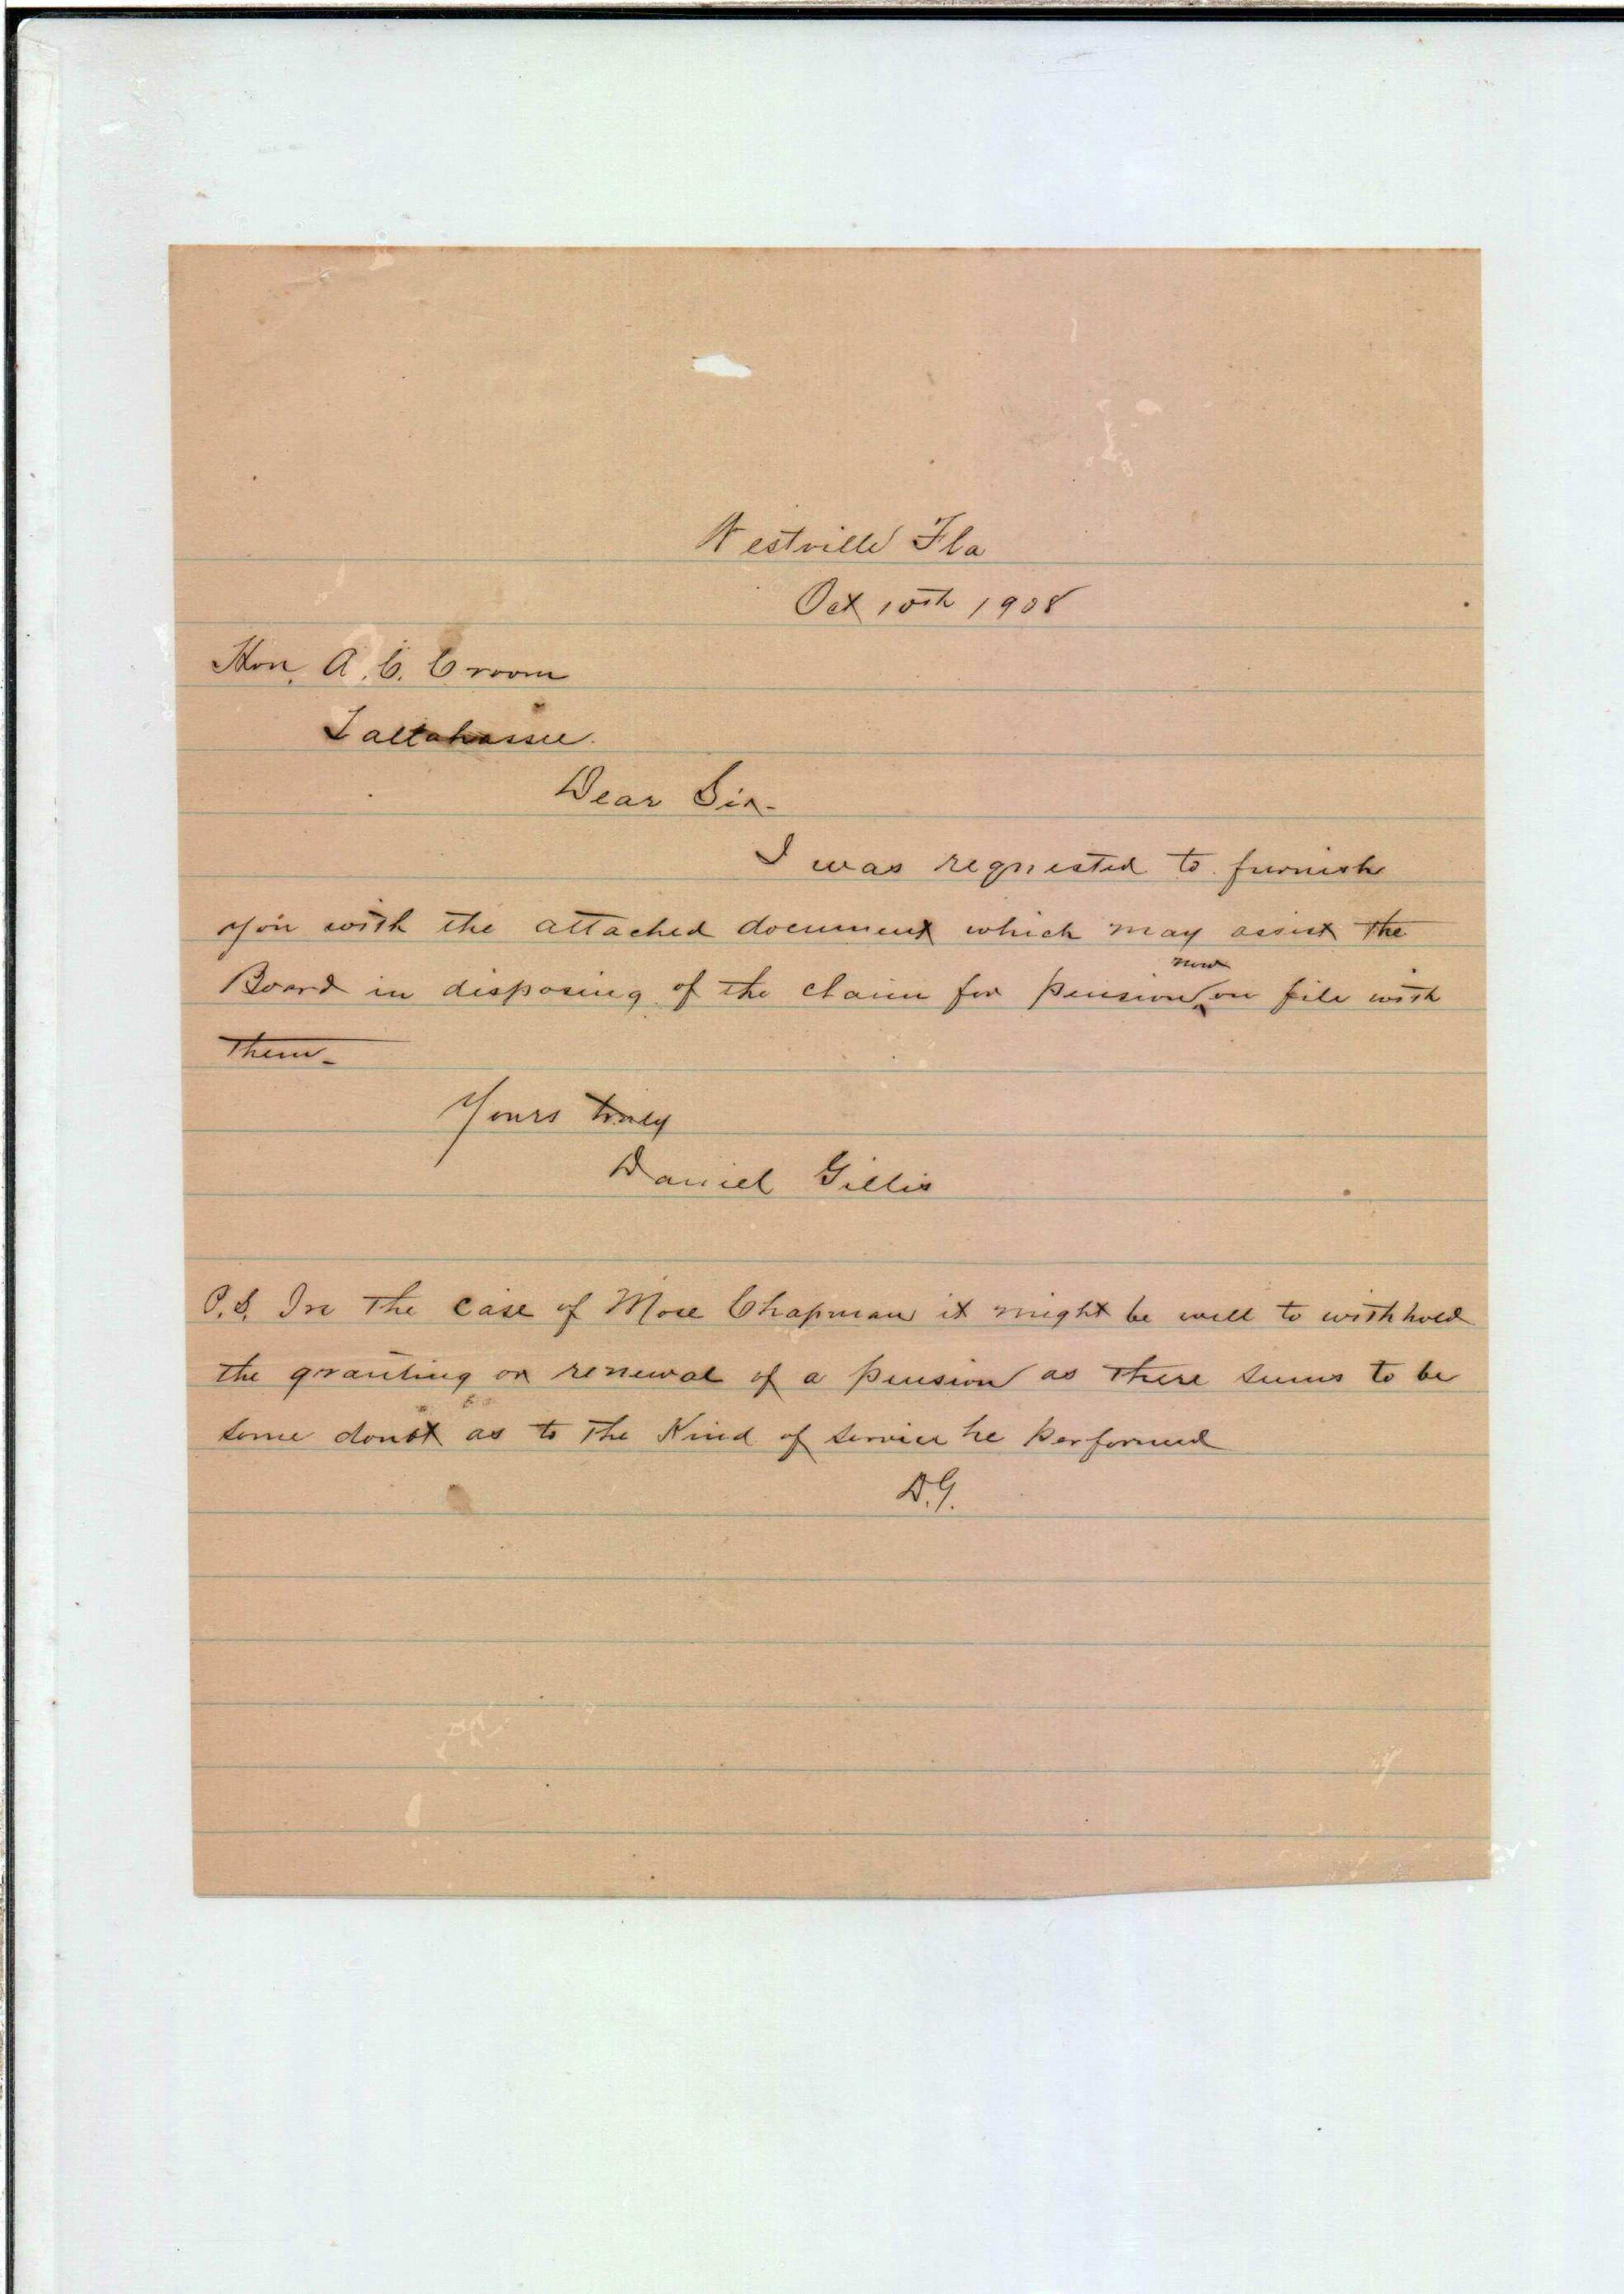 Westville Fla
Oct 10th 1908
Hon. A. C. Croom
Tallahassee.
Dear Sir-
I was requested to furnish
you with the attached document which may assist the
Board in disposing of the claim for pension now on file with
them-
Yours truly
Daniel Gillis
P.S. In the case of Mose Chapman it might be well to withhold
the granting or renewal of a pension as there seems to be
some doubt as to the kind of service he performed
D.G.